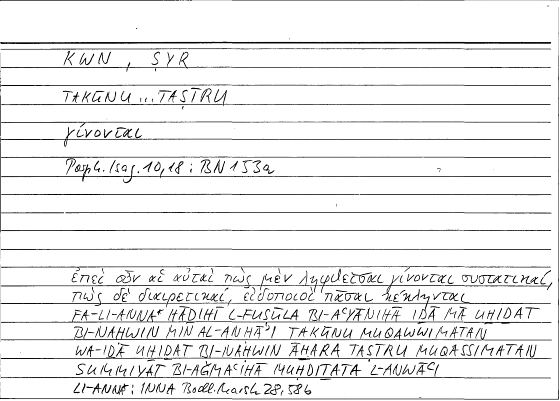 KWN, ṢYR
TAKŪNU ... TAṢĪRU
γίνονται
Porph. Isag. 10,18: BN 153a
ἐπεὶ οὖν αἱ αὐταὶ πὼς μὲν ληφθεῖσαι γίνονται συστατικαί,
πὼς δὲ διαιρετικαί, εἰδοποιοὶ πᾶσαι κέκληνται
FA-LI-ANNA* HĀḎIHĪ L-FUṢŪLA BI-AʿYĀNIHĀ IḎĀ MĀ UḪIḎAT
BI-NAḤWIN MIN AL-ANḤĀʾI TAKŪNU MUQAWWIMATAN
WA-IḎĀ UḪIḎAT BI-NAḤWIN ĀḪARA TAṢĪRU MUQASSIMATAN
SUMMIYAT BI-AĞMAʿIHĀ MUḤDIṮATA L-ANWĀʿI
LI-ANNA: INNA Bodl. Marsh 28, 58b